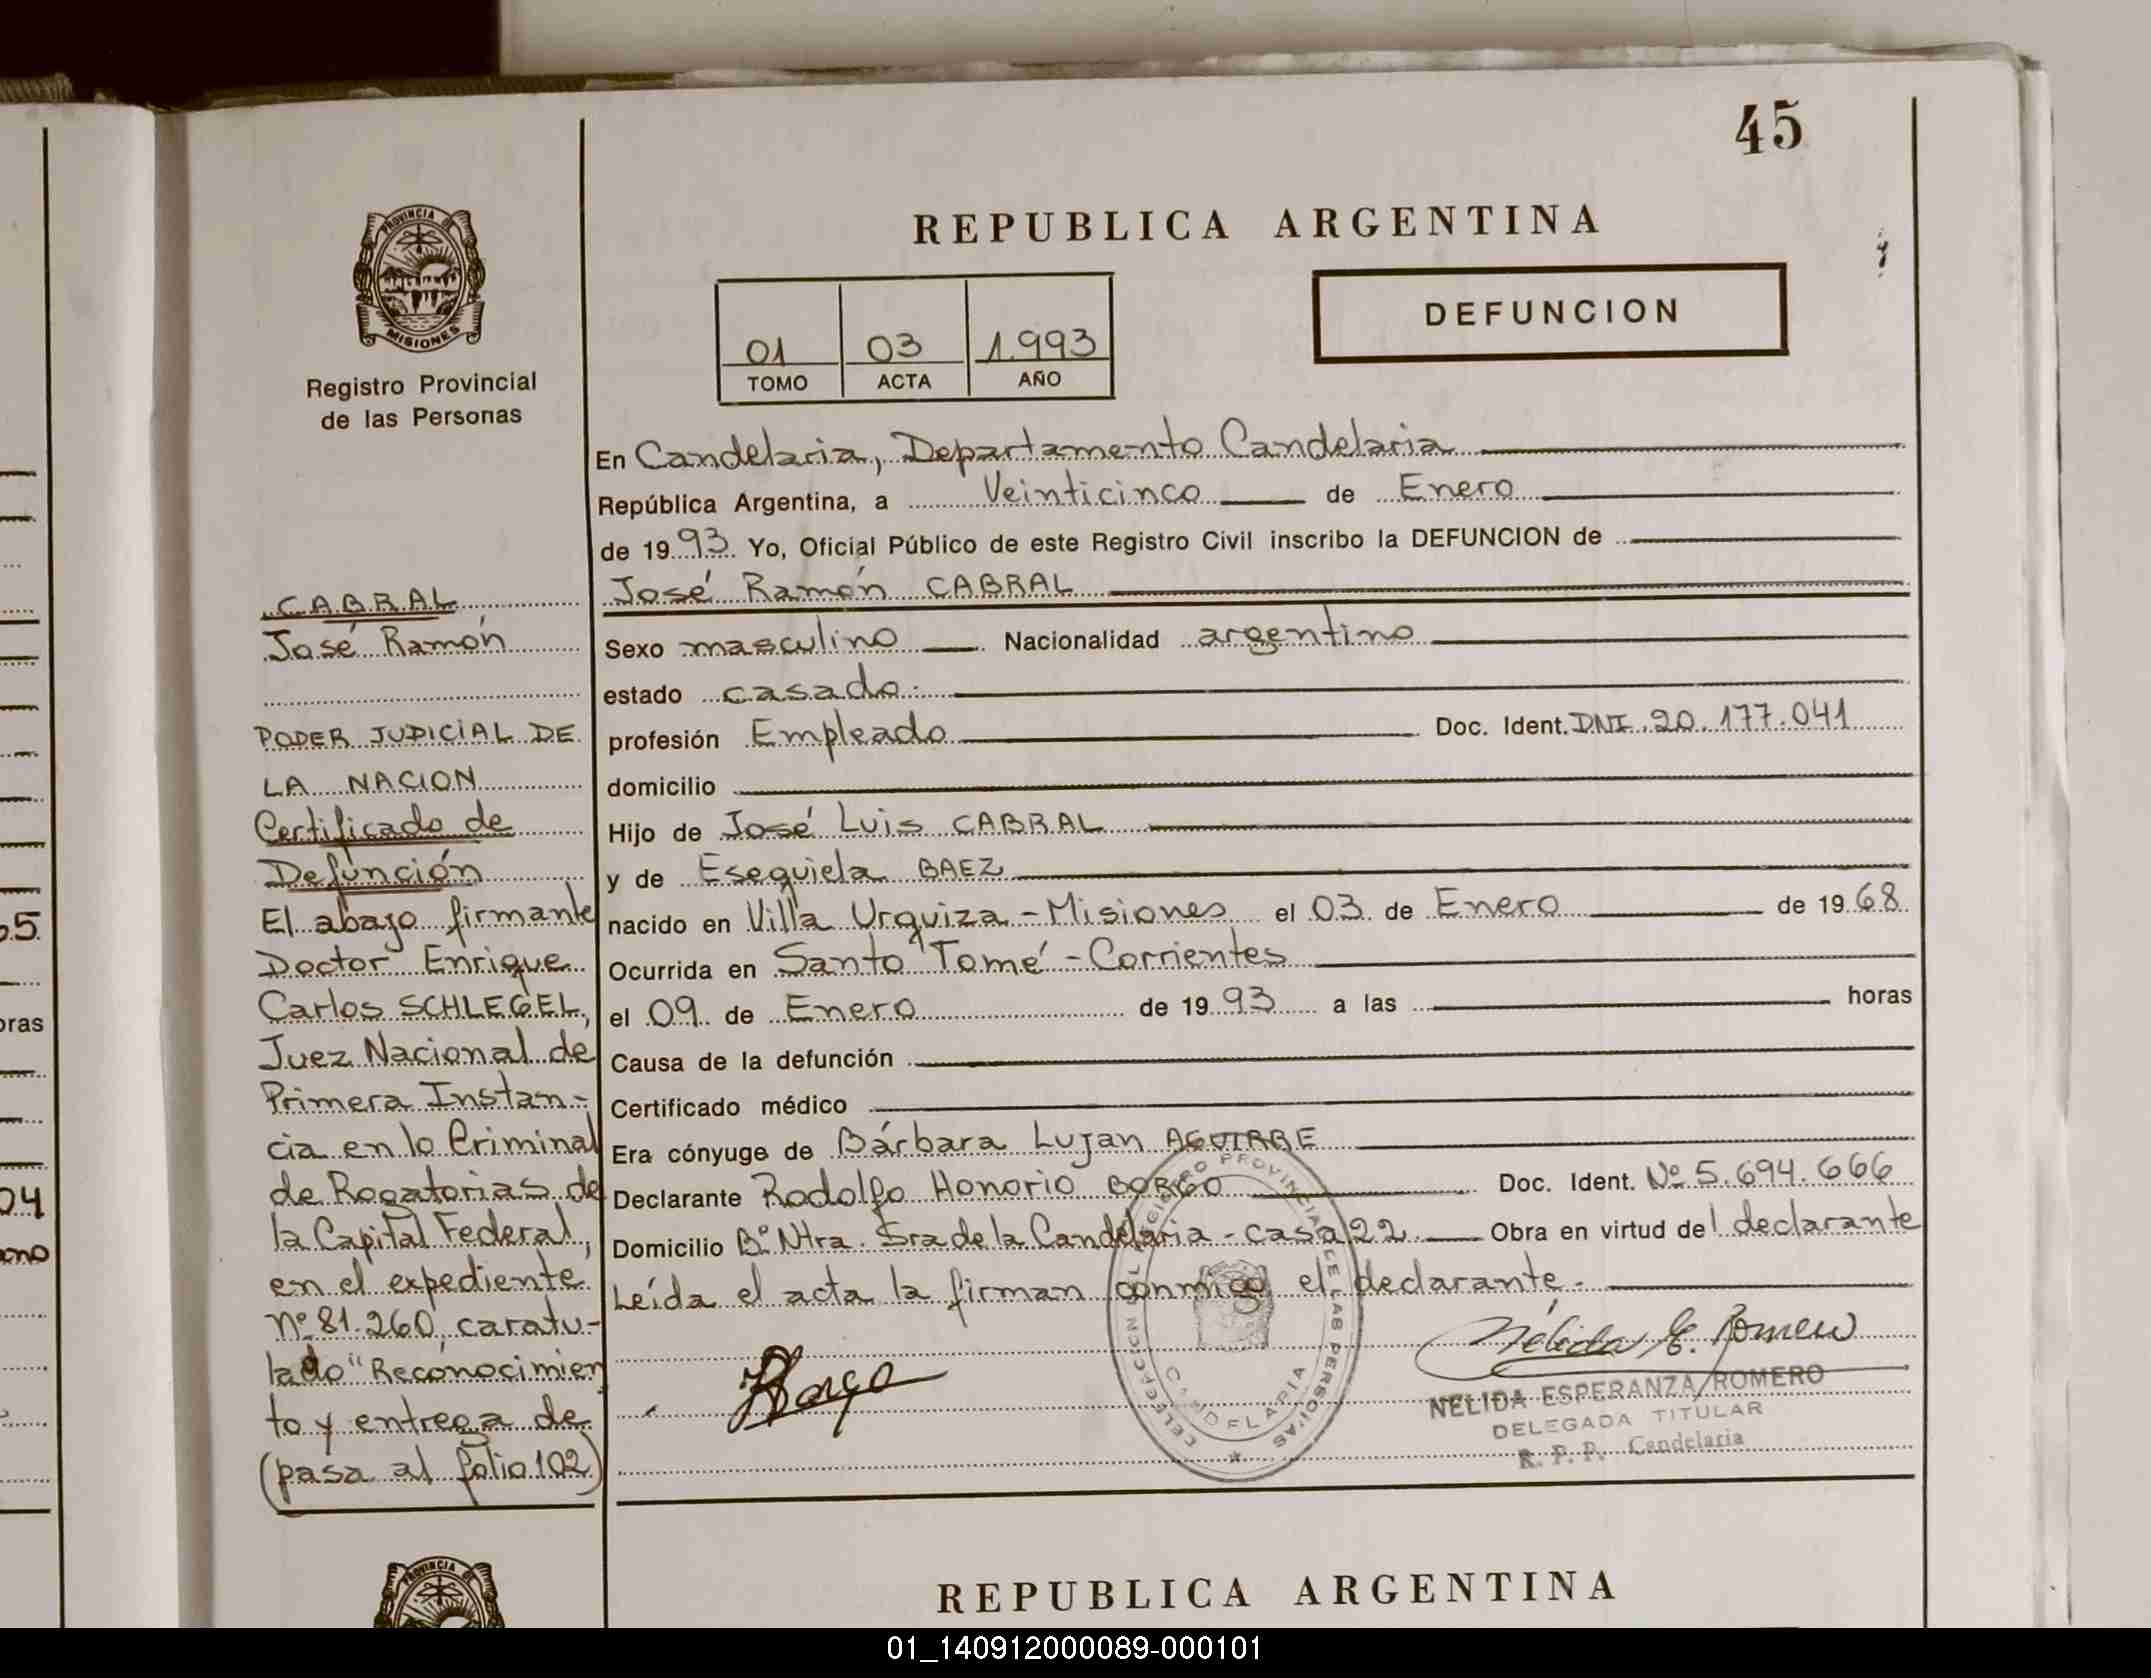 45
REPUBLICA ARGENTINA
DEFUNCION
01 03 1.993
TOMO ACTA AÑO
PROVINCIA DE
MISIONES
Registro Provincial
de las Personas
CABRAL
José Ramón
PODER JUDICIAL DE
LA NACION
Certificado de
Defunción
El abajo firmante
Doctor Enrique
Carlos SCHLEGEL,
Juez Nacional de
Primera Instan-
cia en lo Criminal
de Rogatorias de
la Capital Federal,
en el expediente
Nº 81.260, caratu-
lado "Reconocimien
to y entrega de
(pasa al folio 102)
En Candelaria, Departamento Candelaria
República Argentina, a Veinticinco de Enero
de 1993 Yo, Oficial Público de este Registro Civil inscribo la DEFUNCION de
José Ramón CABRAL
Sexo masculino Nacionalidad argentino
estado casado.
profesión Empleado Doc. Ident. DNI. 20.177.041
domicilio
Hijo de José Luis CABRAL
y de Esequiela BAEZ
nacido en Villa Urquiza - Misiones el 03 de Enero de 1968
Ocurrida en Santo Tomé - Corrientes
el 09 de Enero de 1993 a las horas
Causa de la defunción
Certificado médico
Era cónyuge de Bárbara Lujan AGUIRRE
Declarante Rodolfo Honorio BORGO Doc. Ident. Nº 5.694.666
Domicilio Bº Ntra. Sra de la Candelaria - casa 22 Obra en virtud del declarante
Leída el acta la firman conmigo el declarante.
Borgo
Nélida E. Romero
NELIDA ESPERANZA ROMERO
DELEGADA TITULAR
R. P. P. Candelaria
DELEGACION DEL REGISTRO PROVINCIAL DE LAS PERSONAS
CANDELARIA
05
oras
04
ano
PROVINCIA DE
REPUBLICA ARGENTINA
01_140912000089-000101